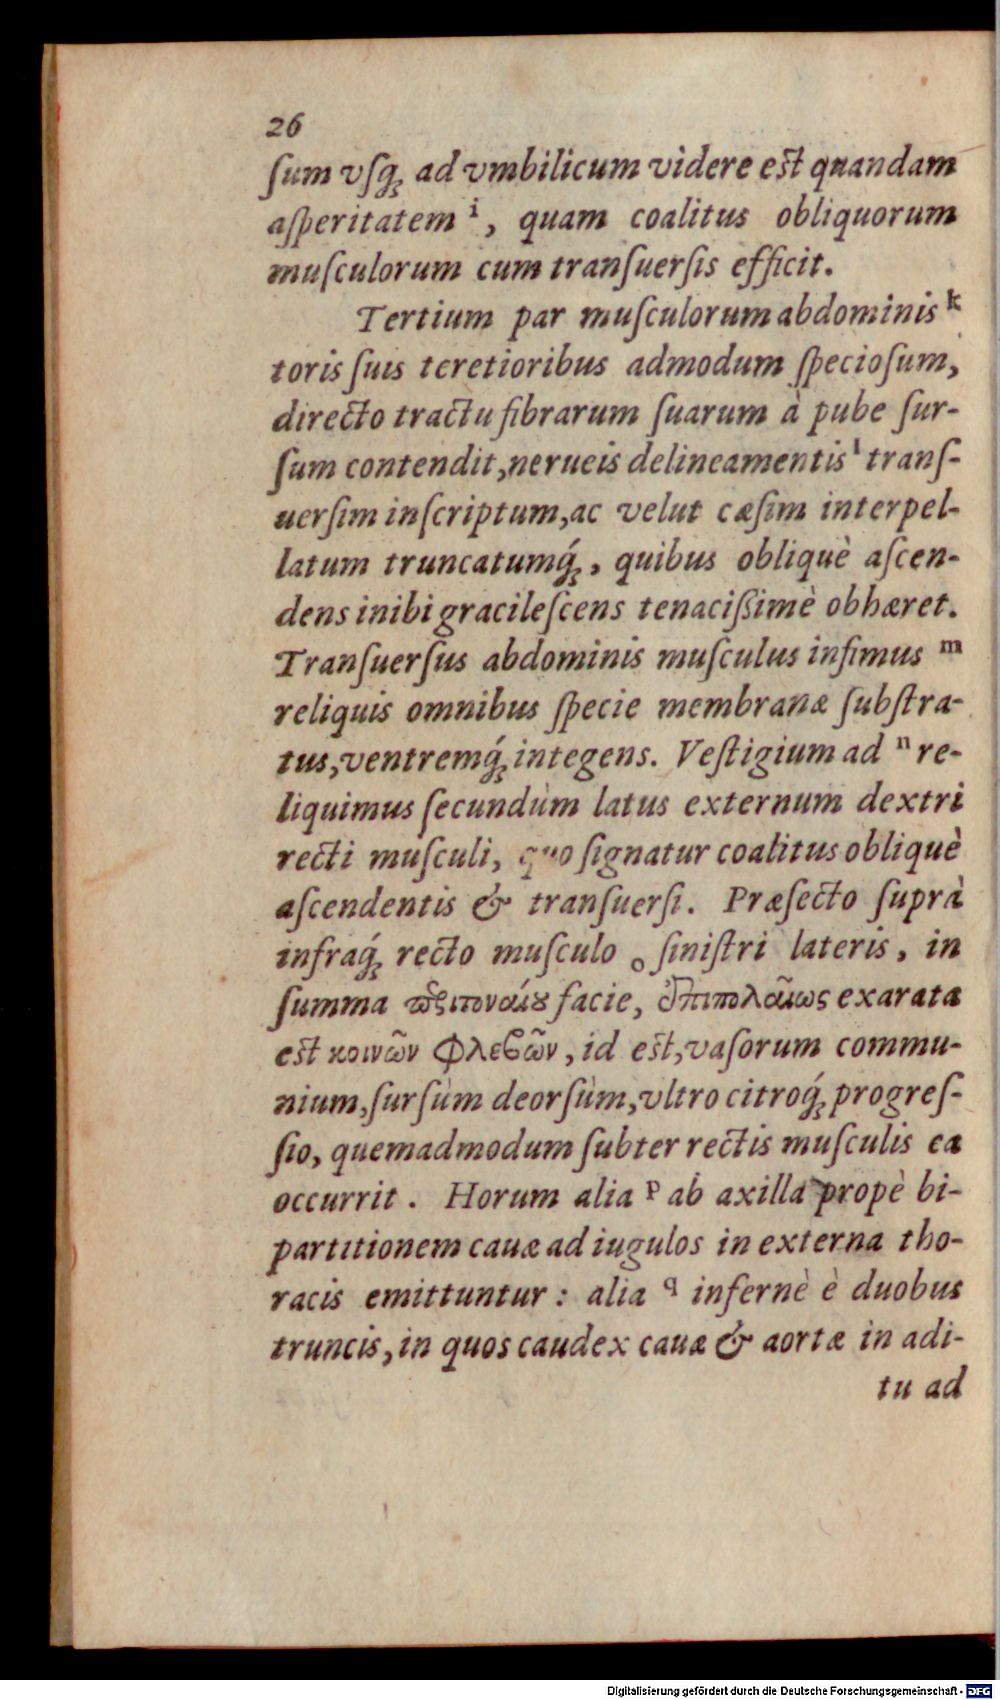 26
ſum vſq́ꝫ ad vmbilicum videre eſt quandam
aſperitatem i, quam coalitus obliquorum
muſculorum cum tranſuerſis efficit.
Tertium par muſculorum abdominis k
toris ſuis teretioribus admodum ſpecioſum,
directo tractu fibrarum ſuarum à pube ſur-
ſum contendit, nerueis delineamentis l tranſ-
uerſim inſcriptum, ac velut cæſim interpel-
latum truncatumq́ꝫ, quibus obliquè aſcen-
dens inibi gracileſcens tenacißimè obhæret.
Tranſuerſus abdominis muſculus infimus m
reliquis omnibus ſpecie membranæ ſubſtra-
tus, ventremq́ꝫ integens. Veſtigium ad n re-
liquimus ſecundùm latus externum dextri
recti muſculi, quo ſignatur coalitus obliquè
aſcendentis & tranſuerſi. Præſecto ſuprà
infraq́ꝫ recto muſculo o ſiniſtri lateris, in
ſumma περιτοναίου facie, ἐπιπολαίως exarata
eſt κοινῶν φλεβῶν, id eſt, vaſorum commu-
nium, ſurſùm deorſùm, vltro citroq́ꝫ progreſ-
ſio, quemadmodum ſubter rectis muſculis ea
occurrit. Horum alia p ab axilla propè bi-
partitionem cauæ ad iugulos in externa tho-
racis emittuntur: alia q infernè è duobus
truncis, in quos caudex cauæ & aortæ in adi-
tu ad
Digitalisierung gefördert durch die Deutsche Forschungsgemeinschaft - DFG